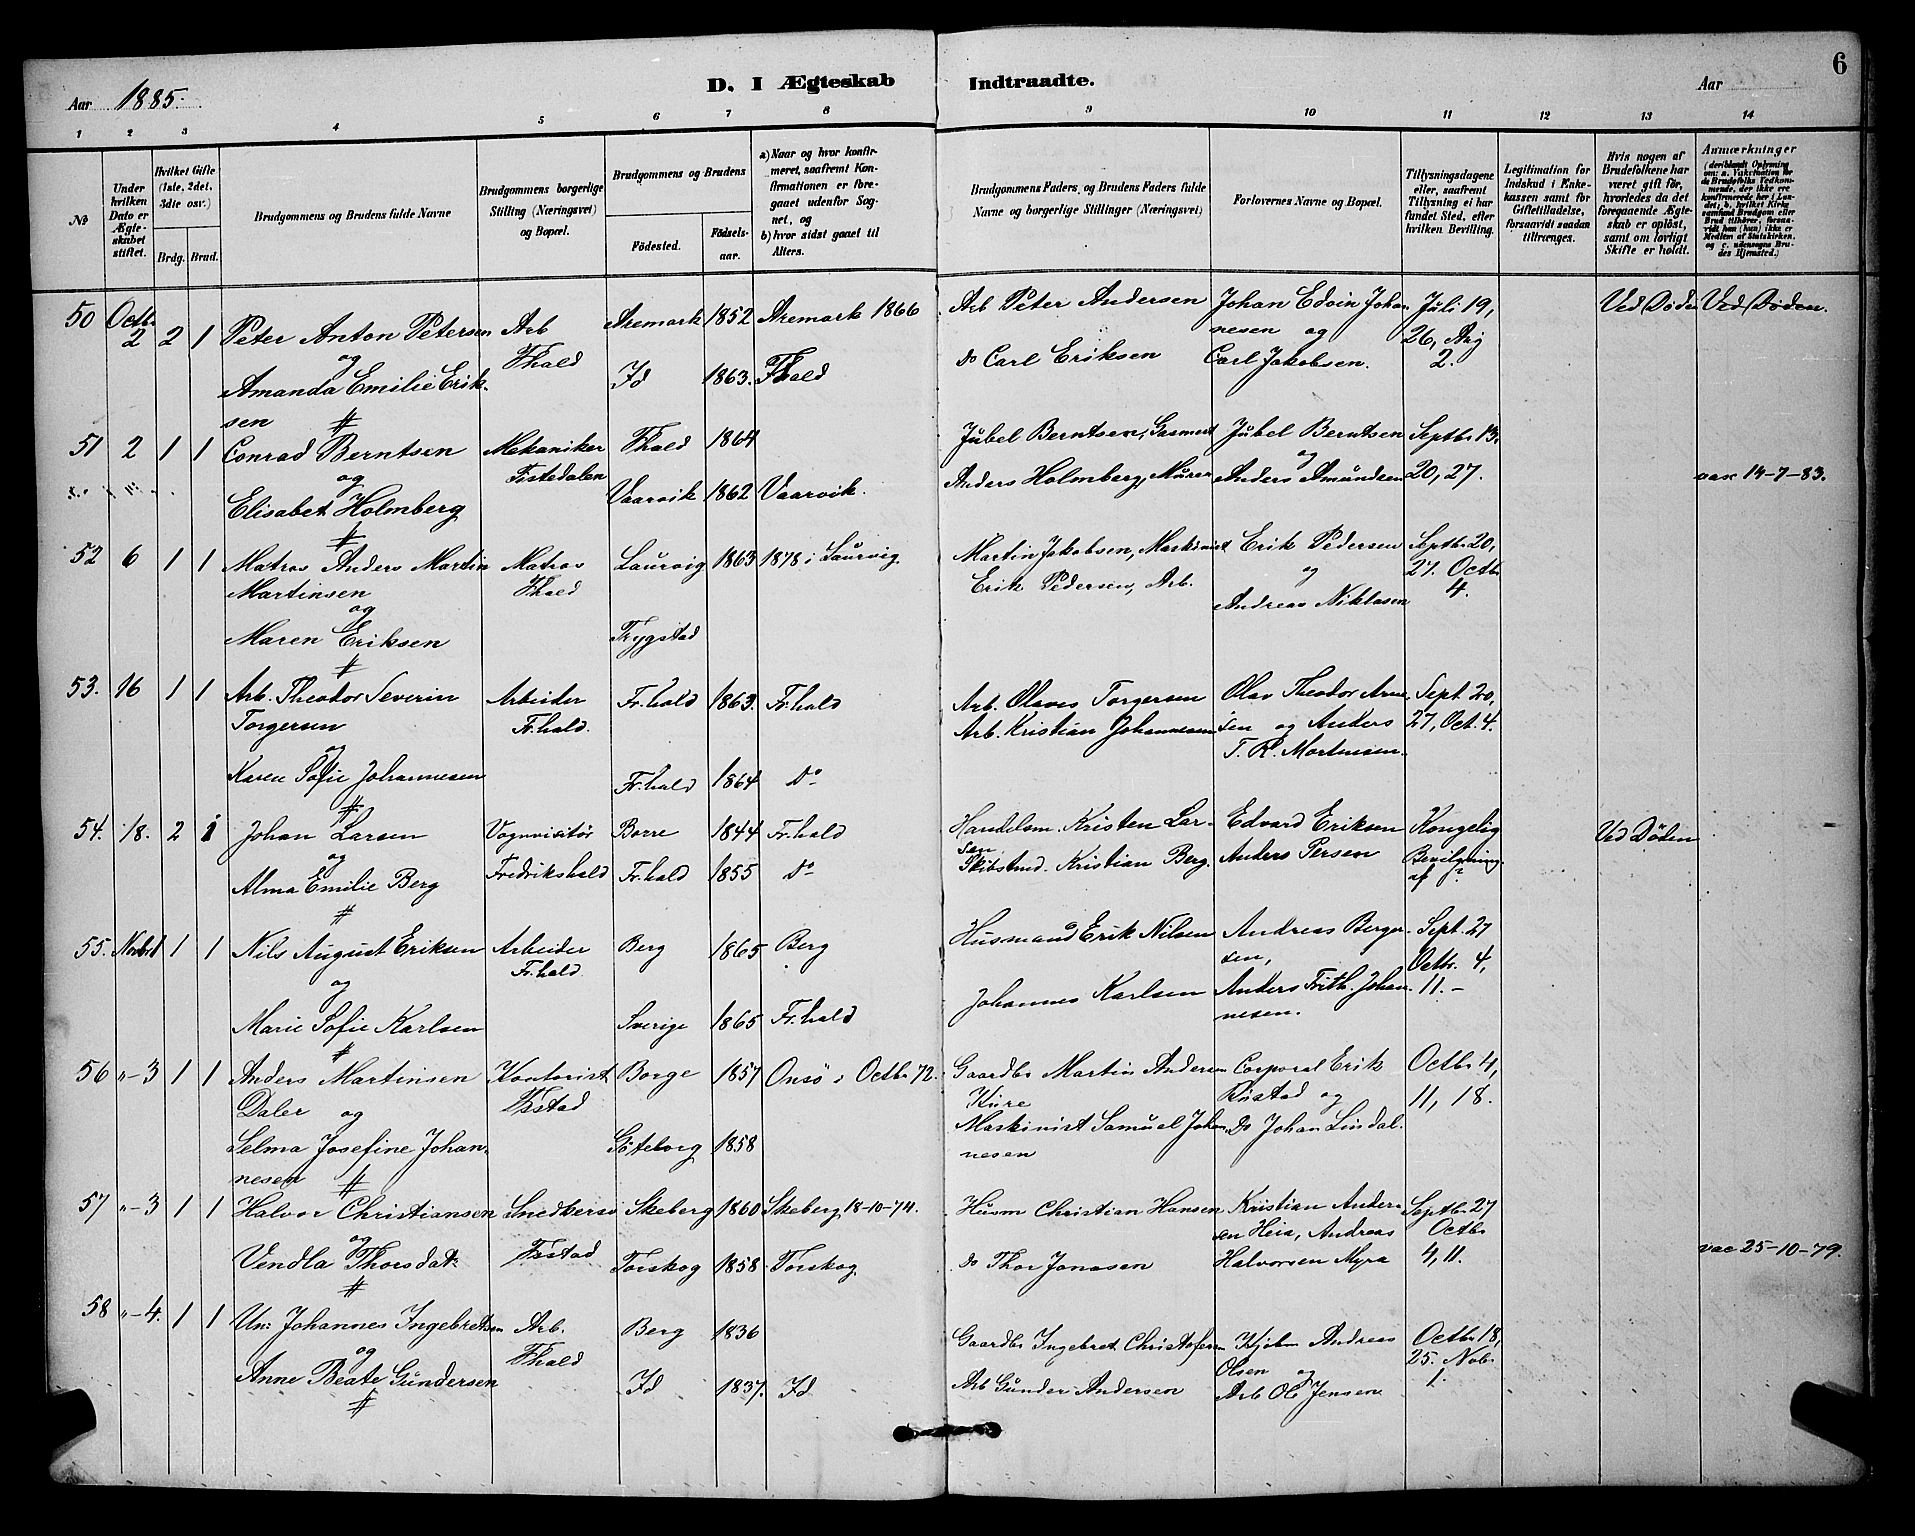 6
D. I Ægteskab Indtraadte.
Aar 1885. Aar
1 2 3 4 5 6 7 8 9 10 11 12 13 14
№
Under hvilken Dato er Ægteskabet stiftet.
Hvilket Gifte (1ste, 2det, 3die osv.)
Brdg. Brud.
Brudgommens og Brudens fulde Navne
Brudgommens borgerlige Stilling (Næringsvei) og Bopæl.
Brudgommens og Brudens
Fødested. Fødselsaar.
a) Naar og hvor konfirmeret, saafremt Konfirmationen er foregaaet udenfor Sognet, og
b) hvor sidst gaaet til Alters.
Brudgommens Faders og Brudens Faders fulde Navne og borgerlige Stillinger (Næringsvei)
Forlovernes Navne og Bopæl.
Tillysningsdagene eller, saafremt Tillysning ei har fundet Sted, efter hvilken Bevilling.
Legitimation for Indskud i Enkekassen samt for Giftetilladelse, forsaavidt saadan tiltrænges.
Hvis nogen af Brudefolkene har været gift før, hvorledes da det foregaaende Ægteskab er opløst, samt om lovligt Skifte er holdt.
Anmærkninger
50 Octbr 2 2 1 Peter Anton Petersen Arb Aremark 1852 Aremark 1866 Arb Peter Andersen Johan Edvin Johan Juli 19, Ved Døden Ved Døden.
og Fhald nesen og 26, Aug
Amanda Emilie Erik- Id 1863. Fhald Do Carl Eriksen Carl Jakobsen. 2.
sen #
51 2 1 1 Conrad Berntsen Mekaniker Fhald 1864 Jubel Berntsen, Jubel Berntsen Septbr 13.
og Tistedalen og
Elisabet Holmberg Vaarvik 1862 Vaarvik. Anders Holmberg, Murer Anders Amundsen 20, 27. vac 14-7-83.
#
52 6 1 1 Matros Anders Martin Matros Laurvig 1863 1878 i Laurvig. Martin Jakobsen, Maskinist Erik Pedersen Septbr 20,
Martinsen Fhald Erik Pedersen, Arb. og 27. Octbr
og Andreas Niklasen 4.
Maren Eriksen Trygstad
#
53. 16 1 1 Arb. Theodor Severin Arbeider Fr.hald 1863. Fr.hald Arb. Olaves Torgersen Olav Theodor Arne Sept. 20,
Torgersen Fr.hald. Arb. Kristian Johannesen sen og Anders 27, Oct. 4.
og T. R. Mortensen.
Karen Sofie Johannesen Fr.hald 1864 Do
#
54. 18. 2 1 Johan Larsen Vognvisitør Borre 1844 Fr.hald Handelsm. Kristen Lar- Edvard Eriksen Kongelig Ved Døden
og sen Bevilgning
Alma Emilie Berg Fredrikshald Fr.hald 1855 Do Skibstmd. Kristian Berg. Anders Persen af ?
#
55. 1 1 Nils August Eriksen Arbeider Berg 1865 Berg Husmand Erik Nilsen Andreas Berge- Sept. 27
og Fr.hald sen, Octbr. 4,
Marie Sofie Karlsen Sverige 1865 Fr.hald Johannes Karlsen Anders Frith. Johan 11.-
# nesen.
56 "-3 1 1 Anders Martinsen Kontorist Borge 1857 Onsö Octbr 72. Gaardbr Martin Andersen Corporal Erik Octbr 4,
Daler og Fsstad Kure Rustad og 11, 18.
Selma Josefine Johan- Göteborg 1858 Maskinist Samuel Johan Do Johan Lindal.
nesen # nesen
57 "-3 1 1 Halvor Christiansen Snedkersv Skeberg 1860 Skeberg 18-10-74. Husm Christian Hansen Kristian Anders- Septbr 27
og Fsstad en Heia, Andreas Octbr
Vendla Thorsdat: Torskog 1858 Torskog Do Thor Jonasen Halvorsen Myra 4, 11. vac 25-10-79.
#
58 "-4. 1 1 Un: Johannes Ingebretsen Arb. Berg 1836 Gaardbr Ingebret Christofersen Kjøbm Andreas Octbr 18,
og Fhald Olsen og 25. Novbr
Anne Beate Gundersen Id 1837. Id Arb Gunder Andersen Arb Ole Jensen 1.
#